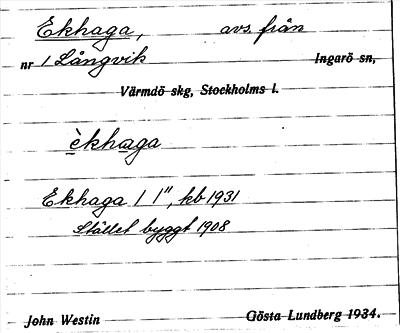 Ekhaga, avs. från
nr 1 Långvik Ingarö sn,
Värmdö skg, Stockholms l.
èkhaga
Ekhaga 1 1", kb 1931
Stället byggt 1908
John Westin Gösta Lundberg 1934.